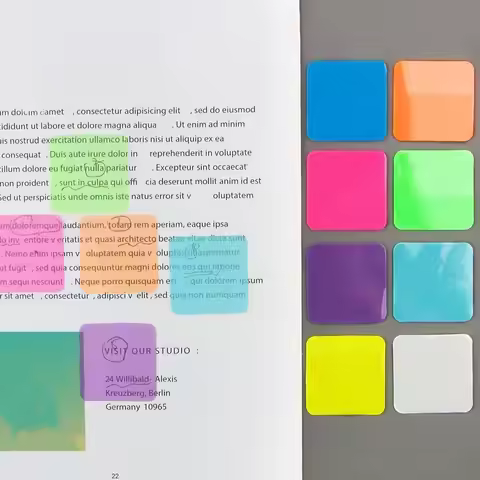 um dolum camet , consectetur adipisicing elit , sed do eiusmod
cididunt ut labore et dolore magna aliqua . Ut enim ad minim
is nostrud exercitation ullamco laboris nisi ut aliquip ex ea
consequat . Duis aute irure dolor in reprehenderit in voluptate
cillum dolore eu fugiat nulla pariatur . Excepteur sint occaecat
non proident , sunt in culpa qui offi cia deserunt mollit anim id est
Sed ut perspiciatis unde omnis iste natus error sit v oluptatem
um doloremque laudantium, totam rem aperiam, eaque ipsa
lo inv entore v eritatis et quasi architecto beatae vitae dicta sunt
. Nemo enim ipsam v oluptatem quia v oluptas sit aspernatur
ut fugit , sed quia consequuntur magni dolores eos qui ratione
m sequi nesciunt . Neque porro quisquam est qui dolorem ipsum
r sit amet , consectetur , adipisci v elit , sed quia non numquam
VISIT OUR STUDIO :
24 Willibald- Alexis
Kreuzberg, Berlin
Germany 10965
22